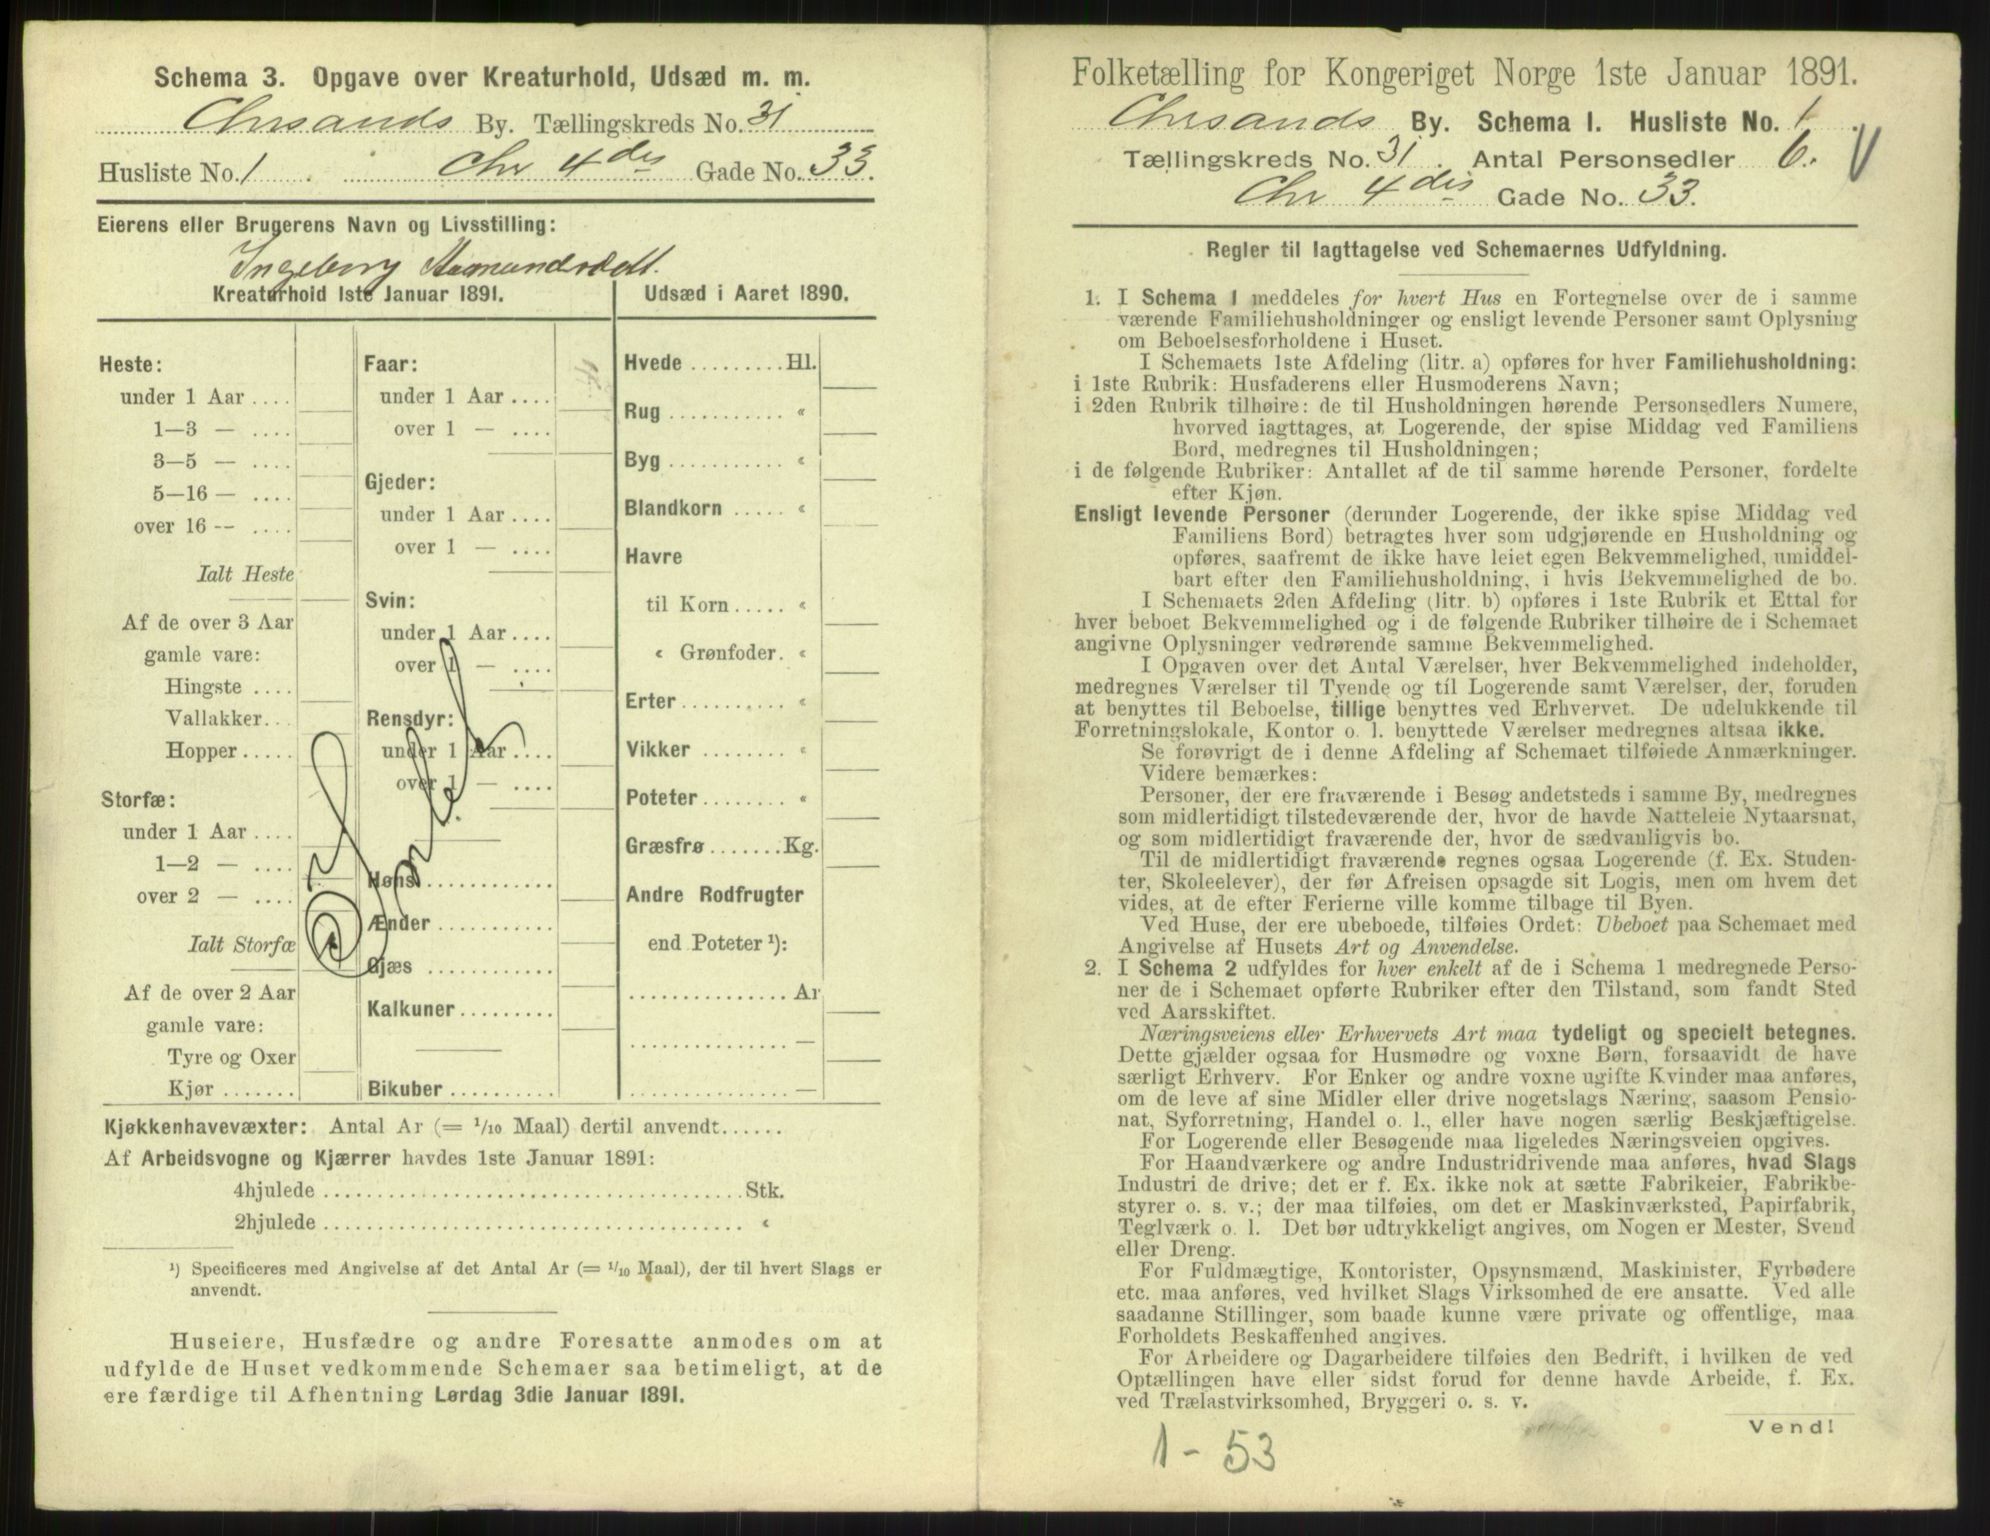 Schema 3. Opgave over Kreaturhold, Udsæd m. m.
Chrsands By. Tællingskreds No. 31
Husliste No. 1 . Chr 4des Gade No. 33.
Eierens eller Brugerens Navn og Livsstilling:
Ingeborg
Kreaturhold 1ste Januar 1891.
Heste:
under 1 Aar ....
1—3 — ....
3—5 — ....
5—16 — ....
over 16 — ....
Ialt Heste
Af de over 3 Aar
gamle vare:
Hingste ....
Vallakker...
Hopper.....
Storfæ:
under 1 Aar ....
1—2 — ....
over 2 — ....
Ialt Storfæ
Af de over 2 Aar
gamle vare:
Tyre og Oxer
Kjør.......
Faar:
under 1 Aar ....
over 1 — ....
Gjeder:
under 1 Aar ....
over 1 — ....
Svin:
under 1 Aar ....
over 1 — ....
Rensdyr:
under 1 Aar ....
over 1 — ....
Høns............
Ænder...........
Gjæs............
Kalkuner.........
Bikuber..........
Udsæd i Aaret 1890.
Hvede.........Hl.
Rug........... «
Byg........... «
Blandkorn..... «
Havre
til Korn..... «
« Grønfoder. «
Erter.......... «
Vikker........ «
Poteter........ «
Græsfrø.......Kg.
Andre Rodfrugter
end Poteter ¹):
...............Ar
...............—
...............—
Kjøkkenhavevæxter: Antal Ar (= 1/10 Maal) dertil anvendt......
Af Arbeidsvogne og Kjærrer havdes 1ste Januar 1891:
4hjulede........................................Stk.
2hjulede........................................ «
¹) Specificeres med Angivelse af det Antal Ar (= 1/10 Maal), der til hvert Slags er
anvendt.
Huseiere, Husfædre og andre Foresatte anmodes om at
udfylde de Huset vedkommende Schemaer saa betimeligt, at de
ere færdige til Afhentning Lørdag 3die Januar 1891.
Folketælling for Kongeriget Norge 1ste Januar 1891.
Chrsands By. Schema I. Husliste No. 1 .
Tællingskreds No. 31 . Antal Personsedler 6. V
Chr 4des Gade No. 33.
Regler til Iagttagelse ved Schemaernes Udfyldning.
1. I Schema 1 meddeles for hvert Hus en Fortegnelse over de i samme
værende Familiehusholdninger og ensligt levende Personer samt Oplysning
om Beboelsesforholdene i Huset.
I Schemaets 1ste Afdeling (litr. a) opføres for hver Familiehusholdning:
i 1ste Rubrik: Husfaderens eller Husmoderens Navn;
i 2den Rubrik tilhøire: de til Husholdningen hørende Personsedlers Numere,
hvorved iagttages, at Logerende, der spise Middag ved Familiens
Bord, medregnes til Husholdningen;
i de følgende Rubriker: Antallet af de til samme hørende Personer, fordelte
efter Kjøn.
Ensligt levende Personer (derunder Logerende, der ikke spise Middag ved
Familiens Bord) betragtes hver som udgjørende en Husholdning og
opføres, saafremt de ikke have leiet egen Bekvemmelighed, umiddel-
bart efter den Familiehusholdning, i hvis Bekvemmelighed de bo.
I Schemaets 2den Afdeling (litr. b) opføres i 1ste Rubrik et Ettal for
hver beboet Bekvemmelighed og i de følgende Rubriker tilhøire de i Schemaet
angivne Oplysninger vedrørende samme Bekvemmelighed.
I Opgaven over det Antal Værelser, hver Bekvemmelighed indeholder,
medregnes Værelser til Tyende og til Logerende samt Værelser, der, foruden
at benyttes til Beboelse, tillige benyttes ved Erhvervet. De udelukkende til
Forretningslokale, Kontor o. l. benyttede Værelser medregnes altsaa ikke.
Se forøvrigt de i denne Afdeling af Schemaet tilføiede Anmærkninger.
Videre bemærkes:
Personer, der ere fraværende i Besøg andetsteds i samme By, medregnes
som midlertidigt tilstedeværende der, hvor de havde Natteleie Nytaarsnat,
og som midlertidigt fraværende der, hvor de sædvanligvis bo.
Til de midlertidigt fraværende regnes ogsaa Logerende (f. Ex. Studen-
ter, Skoleelever), der før Afreisen opsagde sit Logis, men om hvem det
vides, at de efter Ferierne ville komme tilbage til Byen.
Ved Huse, der ere ubeboede, tilføies Ordet: Ubeboet paa Schemaet med
Angivelse af Husets Art og Anvendelse.
2. I Schema 2 udfyldes for hver enkelt af de i Schema 1 medregnede Perso-
ner de i Schemaet opførte Rubriker efter den Tilstand, som fandt Sted
ved Aarsskiftet.
Næringsveiens eller Erhvervets Art maa tydeligt og specielt betegnes.
Dette gjælder ogsaa for Husmødre og voxne Børn, forsaavidt de have
særligt Erhverv. For Enker og andre voxne ugifte Kvinder maa anføres,
om de leve af sine Midler eller drive nogetslags Næring, saasom Pensio-
nat, Syforretning, Handel o. l., eller have nogen særlig Beskjæftigelse.
For Logerende eller Besøgende maa ligeledes Næringsveien opgives.
For Haandværkere og andre Industridrivende maa anføres, hvad Slags
Industri de drive; det er f. Ex. ikke nok at sætte Fabrikeier, Fabrikbe-
styrer o. s. v.; der maa tilføies, om det er Maskinværksted, Papirfabrik,
Teglværk o. l. Det bør udtrykkeligt angives, om Nogen er Mester, Svend
eller Dreng.
For Fuldmægtige, Kontorister, Opsynsmænd, Maskinister, Fyrbødere
etc. maa anføres, ved hvilket Slags Virksomhed de ere ansatte. Ved alle
saadanne Stillinger, som baade kunne være private og offentlige, maa
Forholdets Beskaffenhed angives.
For Arbeidere og Dagarbeidere tilføies den Bedrift, i hvilken de ved
Optællingen have eller sidst forud for denne havde Arbeide, f. Ex.
ved Trælastvirksomhed, Bryggeri o. s. v.
Vend!
1 - 53